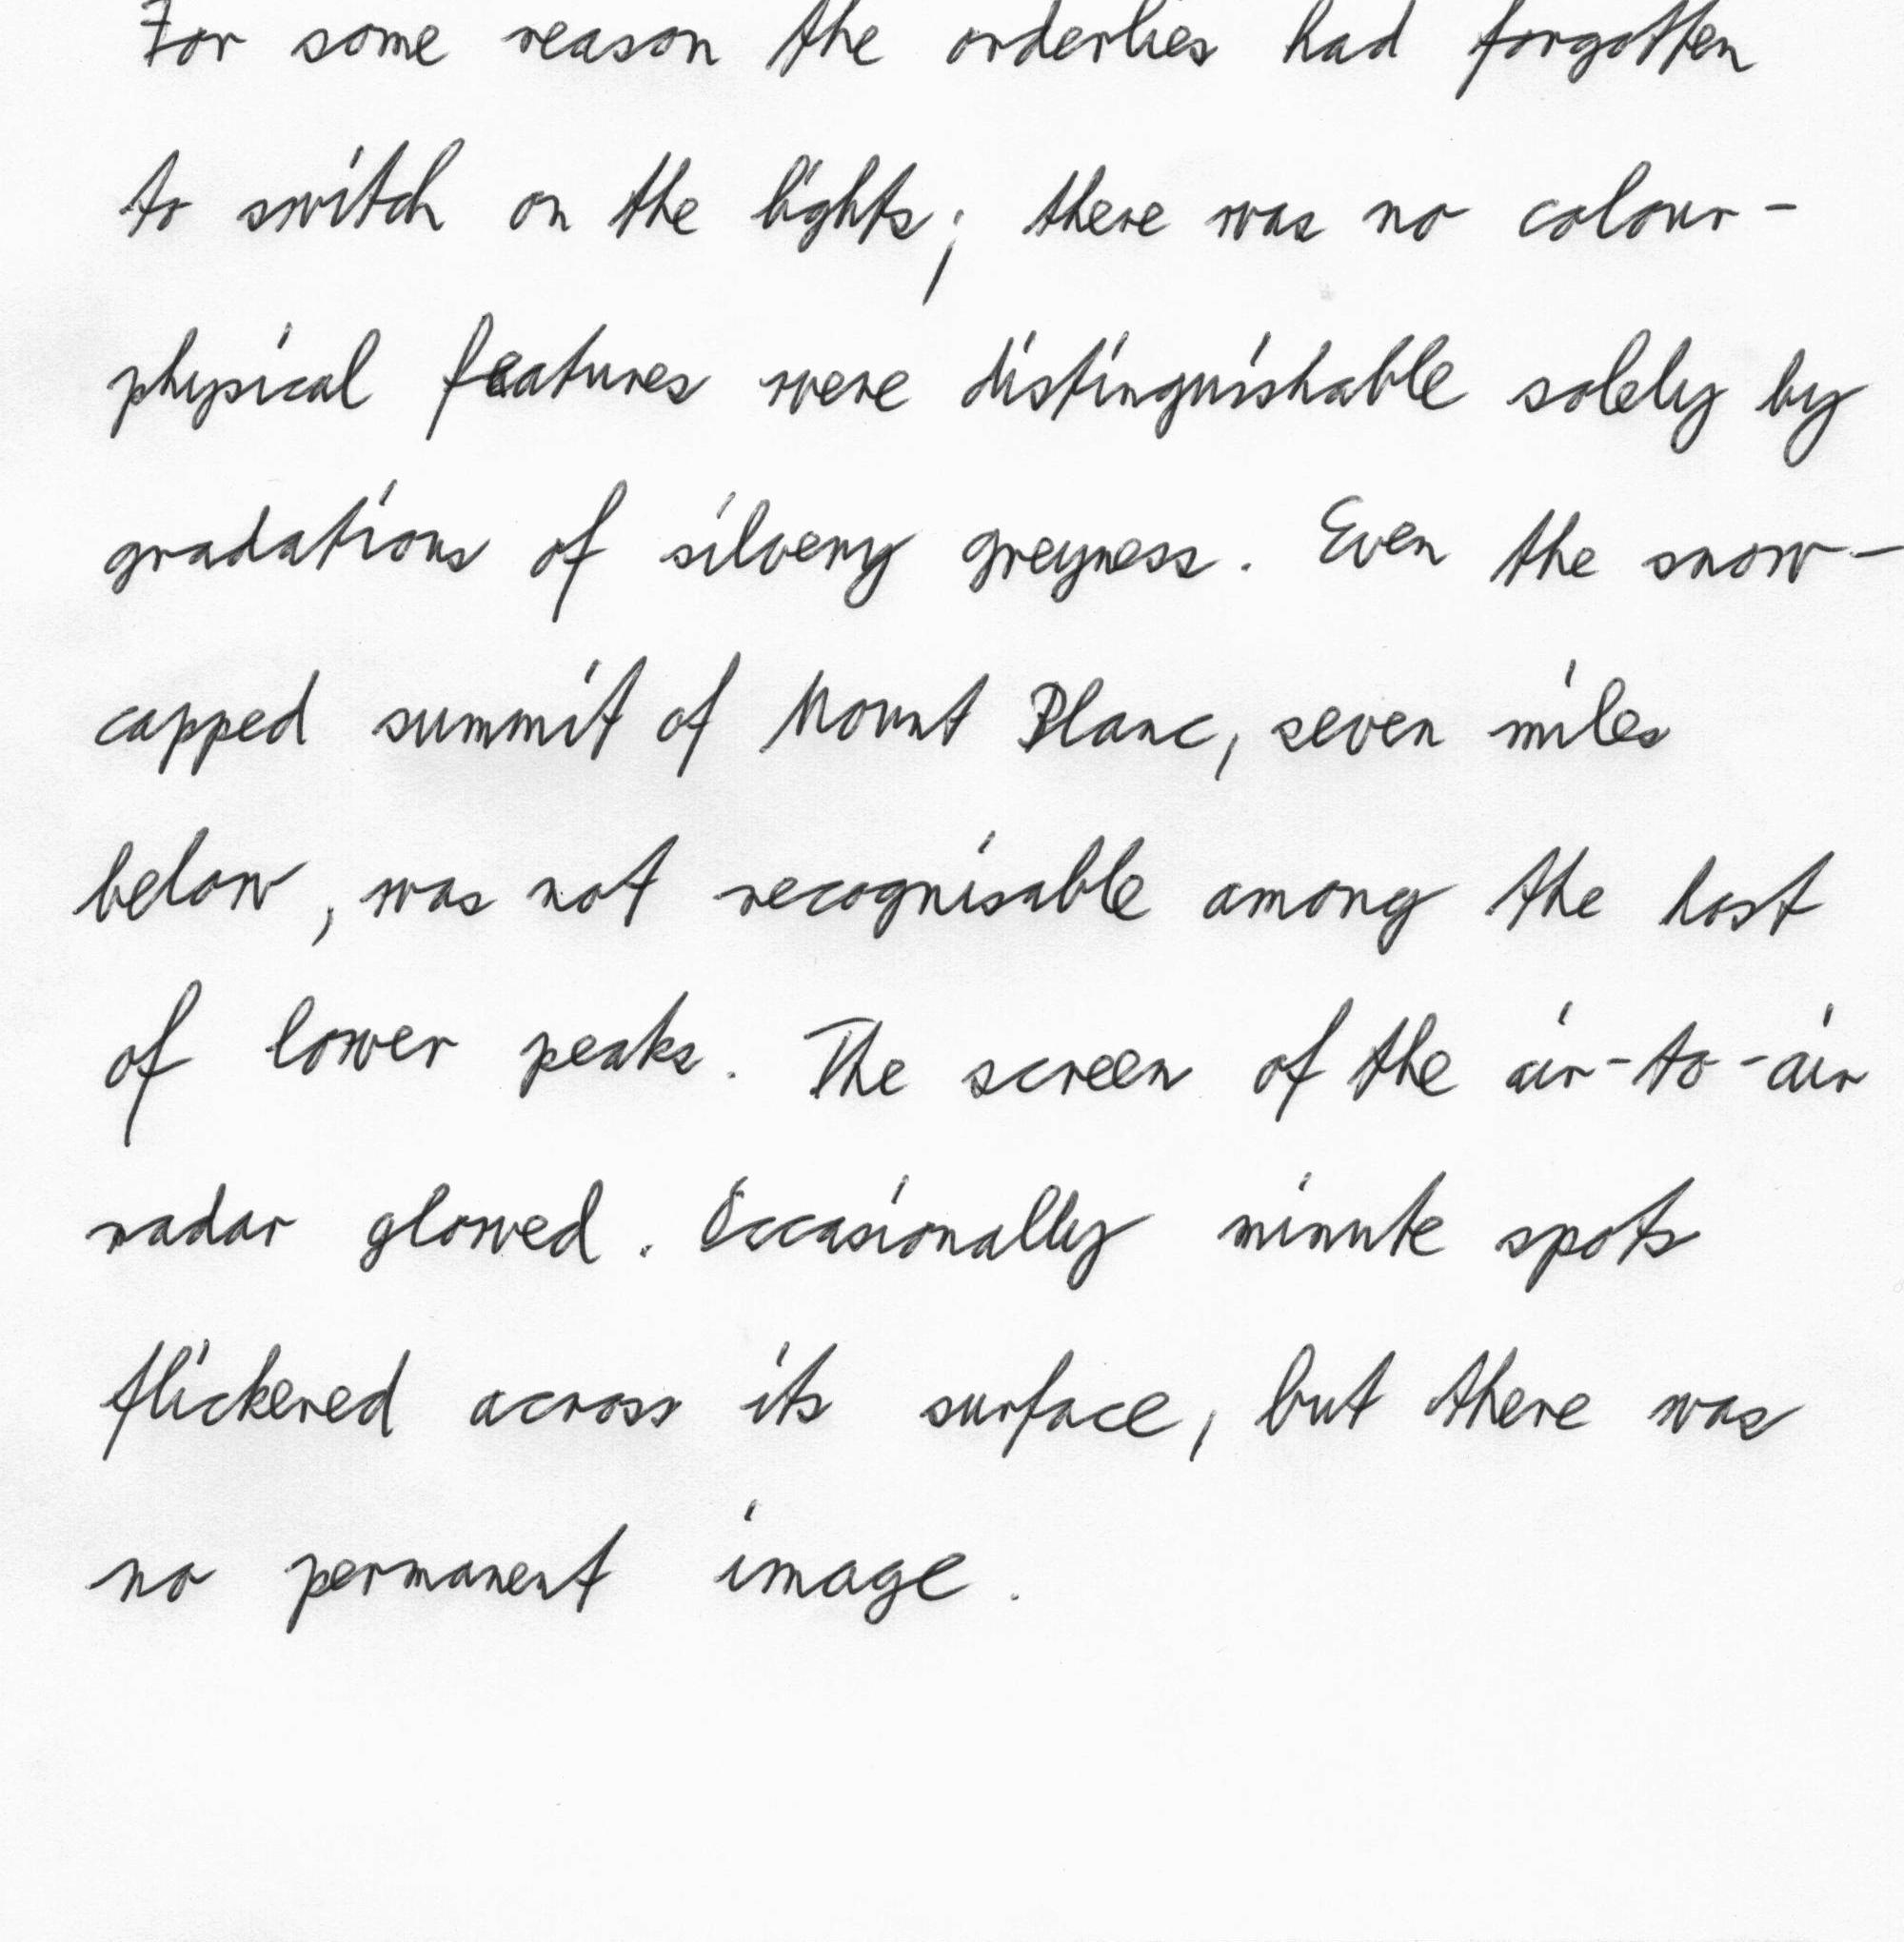 For some reason the orderlies had forgotten
to switch on the lights; there was no colour-
physical features were distinguishable solely by
gradations of silvery greyness. Even the snow-
capped summit of Mount Blanc, seven miles
below, was not recognisable among the host
of lower peaks. The screen of the air-to-air
radar glowed. Occasionally minute spots
flickered across its surface, but there was
no permanent image.